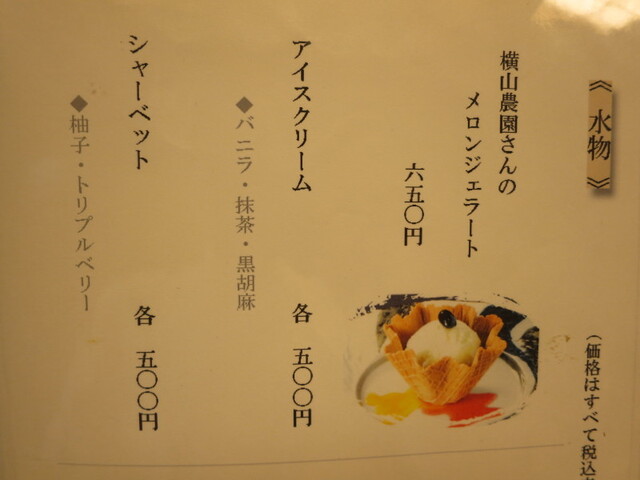 《 水物 》
(価格はすべて税込
横山農園さんの
メロンジェラート
六五〇円
アイスクリーム
◆バニラ・抹茶・黒胡麻
各 五〇〇円
シャーベット
◆柚子・トリプルベリー
各 五〇〇円